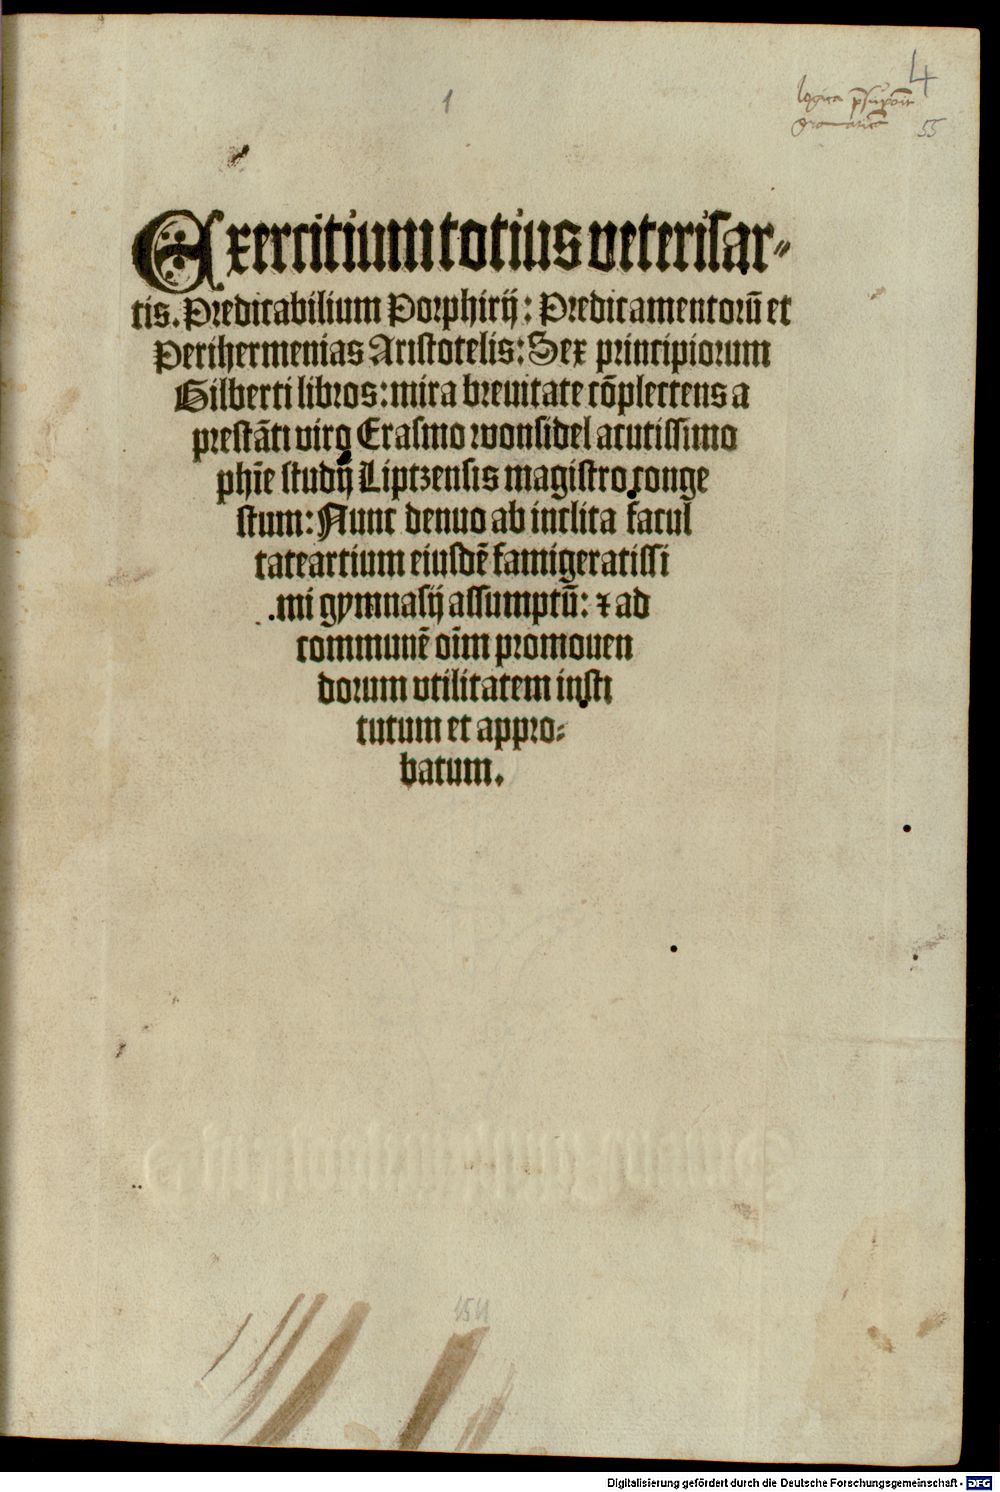 4
1
logica p̄supōit
gramaticā
55
Exercitium totius veteris ar⸗
tis. Predicabilium Porphirij: Predicamentorū et
Perihermenias Aristotelis: Sex principiorum
Gilberti libros: mira breuitate cōplectens a
prestāti viro Erasmo wonsidel acutissimo
phīe studij Liptzensis magistro conge
stum: Nunc denuo ab inclita facul
tate artium eiusdē famigeratissi
mi gymnasij assumptū: ⁊ ad
communē oīm promouen
dorum vtilitatem insti
tutum et appro⸗
batum.
1511
Digitalisierung gefördert durch die Deutsche Forschungsgemeinschaft - DFG